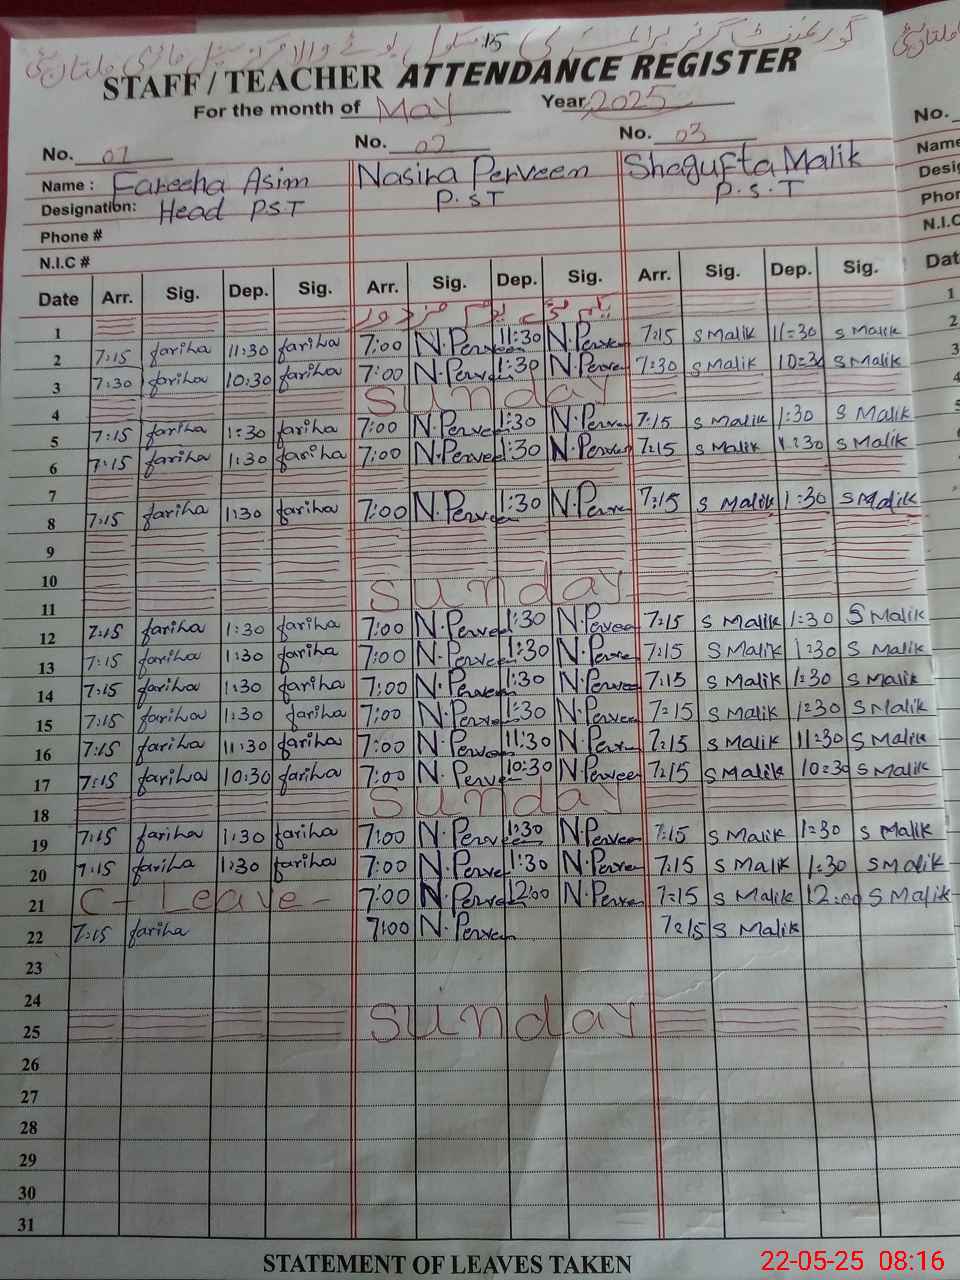 گورنمنٹ گرلز پرائمری سکول
STAFF / TEACHER ATTENDANCE REGISTER
For the month of May Year 2025
No. 01 No. 02 No. 03 No.
Name : Fareeha Asim Nasira Perveen Shagufta Malik Name
Designation: Head PST P.ST P.S.T
Phone #
N.I.C # N.I.C
Date Arr. Sig. Dep. Sig. Arr. Sig. Dep. Sig. Arr. Sig. Dep. Sig. Dat
1 یکم مئی یوم مزدور 1
2 7:15 fariha 11:30 fariha 7:00 N.Perveen 11:30 N.Perveen 7:15 S Malik 11:30 S Malik 2
3 7:30 fariha 10:30 fariha 7:00 N.Perveen 1:30 N.Perveen 7:30 S Malik 10:30 S Malik 3
4 Sunday 4
5 7:15 fariha 1:30 fariha 7:00 N.Perveen 1:30 N.Perveen 7:15 S Malik 1:30 S Malik
6 7:15 fariha 1:30 fariha 7:00 N.Perveen 1:30 N.Perveen 7:15 S Malik 1:30 S Malik
7
8 7:15 fariha 1:30 fariha 7:00 N.Perveen 1:30 N.Perveen 7:15 S Malik 1:30 S Malik
9
10
11 Sunday
12 7:15 fariha 1:30 fariha 7:00 N.Perveen 1:30 N.Perveen 7:15 S Malik 1:30 S Malik
13 7:15 fariha 1:30 fariha 7:00 N.Perveen 1:30 N.Perveen 7:15 S Malik 1:30 S Malik
14 7:15 fariha 1:30 fariha 7:00 N.Perveen 1:30 N.Perveen 7:15 S Malik 1:30 S Malik
15 7:15 fariha 1:30 fariha 7:00 N.Perveen 1:30 N.Perveen 7:15 S Malik 1:30 S Malik
16 7:15 fariha 11:30 fariha 7:00 N.Perveen 11:30 N.Perveen 7:15 S Malik 11:30 S Malik
17 7:15 fariha 10:30 fariha 7:00 N.Perveen 10:30 N.Perveen 7:15 S Malik 10:30 S Malik
18 Sunday
19 7:15 fariha 1:30 fariha 7:00 N.Perveen 1:30 N.Perveen 7:15 S Malik 1:30 S Malik
20 7:15 fariha 1:30 fariha 7:00 N.Perveen 1:30 N.Perveen 7:15 S Malik 1:30 S Malik
21 C- Leave - 7:00 N.Perveen 12:00 N.Perveen 7:15 S Malik 12:00 S Malik
22 7:15 fariha 7:00 N.Perveen 7:15 S Malik
23
24
25 Sunday
26
27
28
29
30
31
STATEMENT OF LEAVES TAKEN
22-05-25 08:16